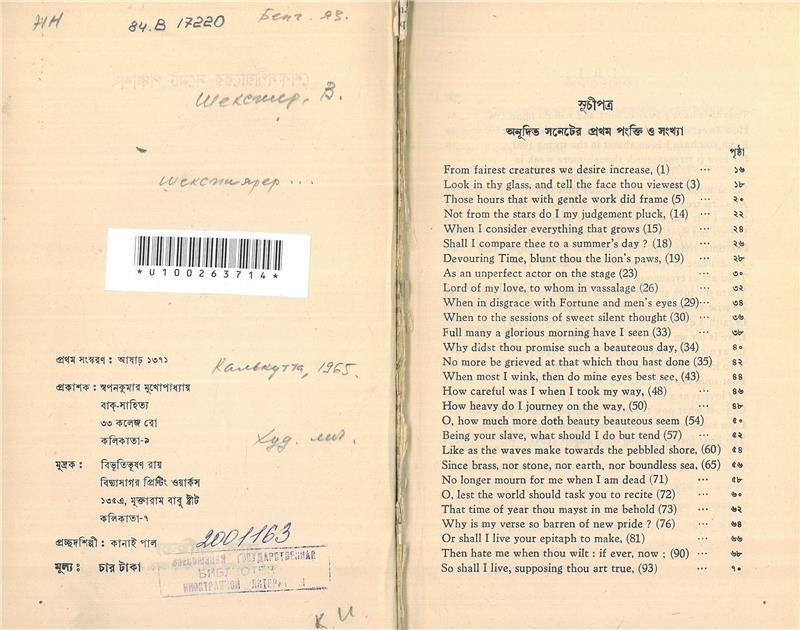 ИН
84.В 17220
Бенг. яз.
Шекспир, В.
*U100263714*
প্রথম সংস্করণ : আষাঢ় ১৩৭১
Калькутта, 1965.
প্রকাশক : স্বপনকুমার মুখোপাধ্যায়
বাক্-সাহিত্য
৩৩ কলেজ রো
কলিকাতা-৯
Худ. лит.
মুদ্রক : বিভূতিভূষণ রায়
বিদ্যাসাগর প্রিন্টিং ওয়ার্কস
১৩৫এ, মুক্তারাম বাবু ষ্ট্রীট
কলিকাতা-৭
প্রচ্ছদশিল্পী : কানাই পাল
2001163
মূল্য : চার টাকা
ГОСУДАРСТВЕННАЯ
БИБЛИОТЕКА
ИНОСТРАННОЙ ЛИТЕРАТУРЫ
К. И.
সূচীপত্র
অনূদিত সনেটের প্রথম পংক্তি ও সংখ্যা
পৃষ্ঠা
From fairest creatures we desire increase, (1) ... ১৬
Look in thy glass, and tell the face thou viewest (3) ১৮
Those hours that with gentle work did frame (5) ... ২০
Not from the stars do I my judgement pluck, (14) ... ২২
When I consider everything that grows (15) ... ২৪
Shall I compare thee to a summer's day ? (18) ... ২৬
Devouring Time, blunt thou the lion's paws, (19) ... ২৮
As an unperfect actor on the stage (23) ... ৩০
Lord of my love, to whom in vassalage (26) ... ৩২
When in disgrace with Fortune and men's eyes (29)... ৩৪
When to the sessions of sweet silent thought (30) ... ৩৬
Full many a glorious morning have I seen (33) ... ৩৮
Why didst thou promise such a beauteous day, (34) ৪০
No more be grieved at that which thou hast done (35) ৪২
When most I wink, then do mine eyes best see, (43) ৪৪
How careful was I when I took my way, (48) ... ৪৬
How heavy do I journey on the way, (50) ... ৪৮
O, how much more doth beauty beauteous seem (54) ৫০
Being your slave, what should I do but tend (57) ... ৫২
Like as the waves make towards the pebbled shore, (60) ৫৪
Since brass, nor stone, nor earth, nor boundless sea, (65) ৫৬
No longer mourn for me when I am dead (71) ... ৫৮
O, lest the world should task you to recite (72) ... ৬০
That time of year thou mayst in me behold (73) ... ৬২
Why is my verse so barren of new pride ? (76) ... ৬৪
Or shall I live your epitaph to make, (81) ... ৬৬
Then hate me when thou wilt : if ever, now ; (90) ... ৬৮
So shall I live, supposing thou art true, (93) ... ৭০